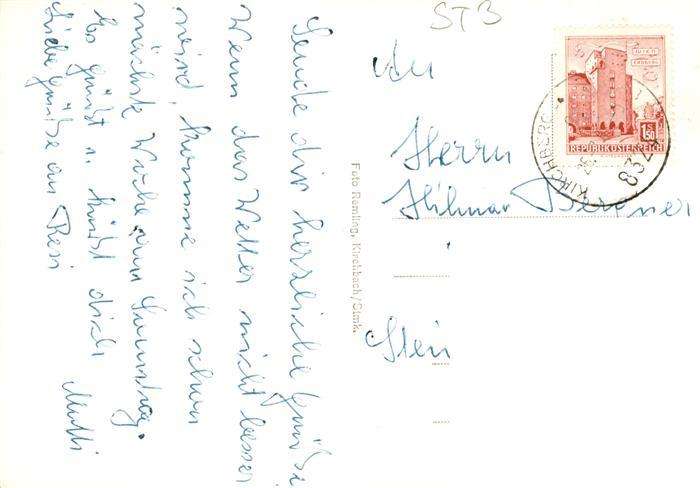 Sende dir herzliche Grüße
Wenn das Wetter nicht besser
wird, komme ich schon
nächste Woche am Samstag.
Es grüßt u. küßt dich
Mutti
Liebe Grüße an Resi
Foto Remling, Kirchbach/Stmk.
ST 3
An
Herrn
Hilmar
Stein
WIEN
ERDBERG
1.50
REPUBLIK ÖSTERREICH
832